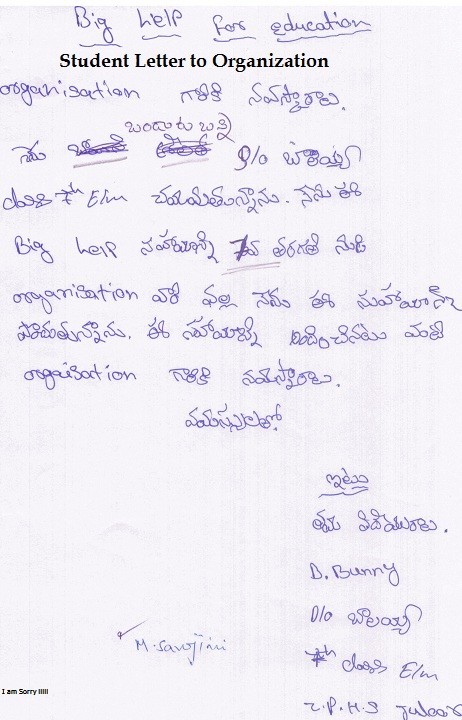 Big help for education
Student Letter to Organization
organisation గారికి నమస్కారాలు.
బందుకు బన్ని
నేను D/o బాలయ్య
class 7th E/m చదువుతున్నాను. నేను ఈ
Big help సహాయాన్ని 7వ తరగతి నుండి
organisation వారి వల్ల నేను ఈ సహాయాన్ని
పొందుతున్నాను. ఈ సహాయాన్ని అందించినటు వంటి
organisation గారికి నమస్కారాలు.
ఇట్లు
తమ విదేయురాలు.
D. Bunny
D/o బాలయ్య
7th class E/m
Z.P.H.S
M. Sarojini
I am Sorry lilili